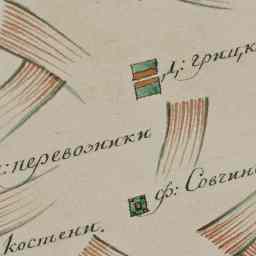 Д: гриц,к
: перевозники
ф: Совчин
костени.